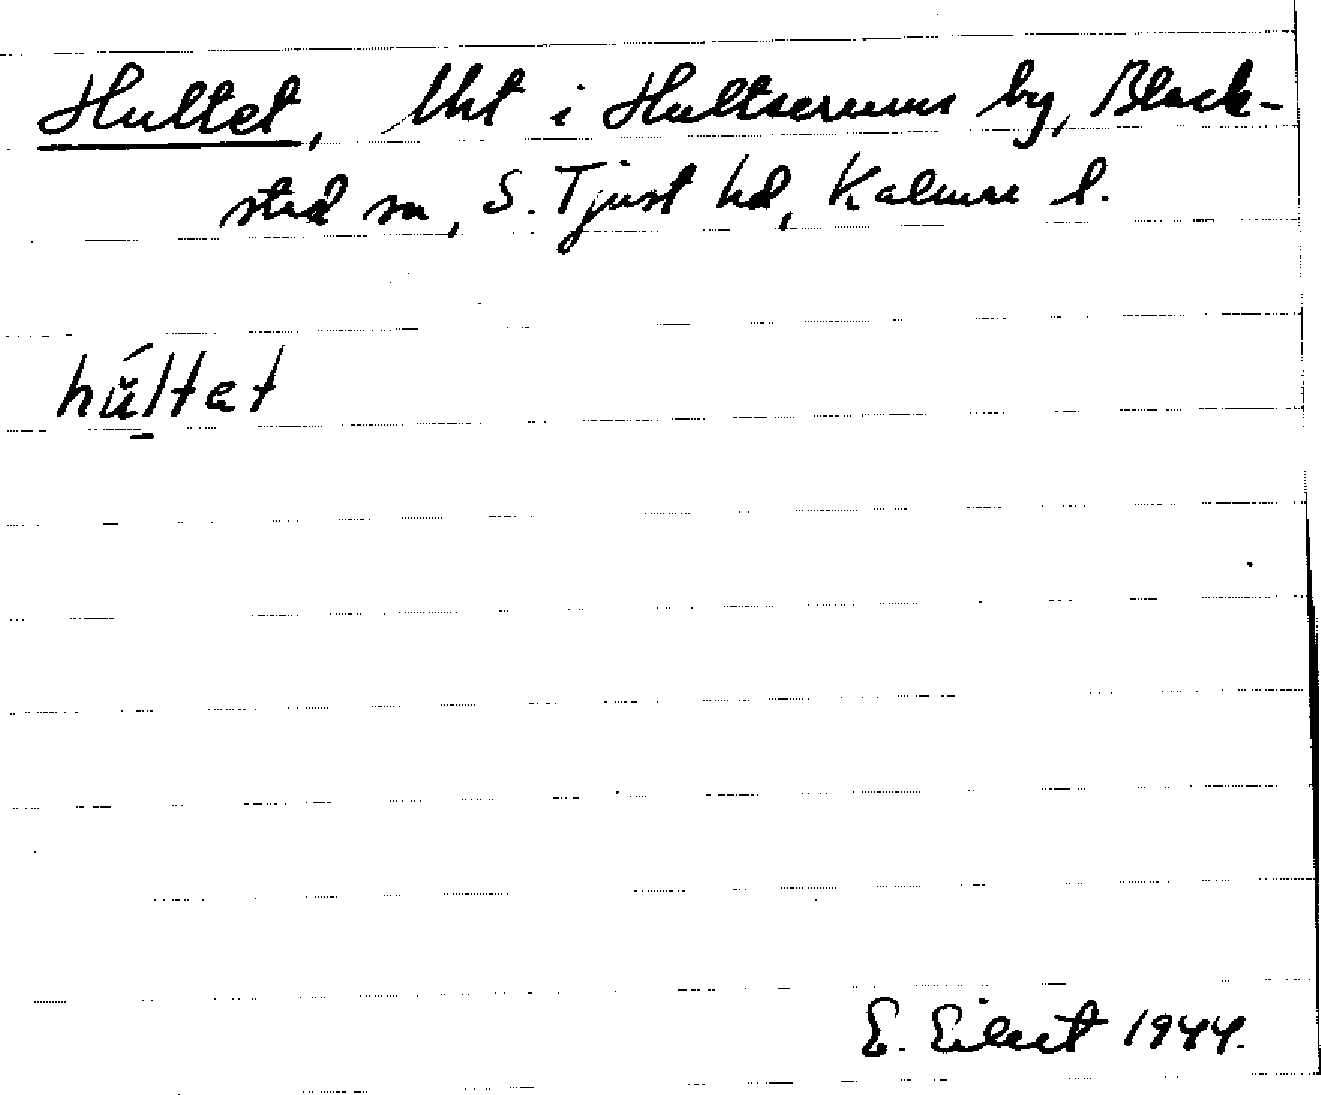 Hultet, lht i Hultserums by, Black-
stad sn, S. Tjust hd, Kalmar l.
hú̆ltet
E. Eilert 1944.